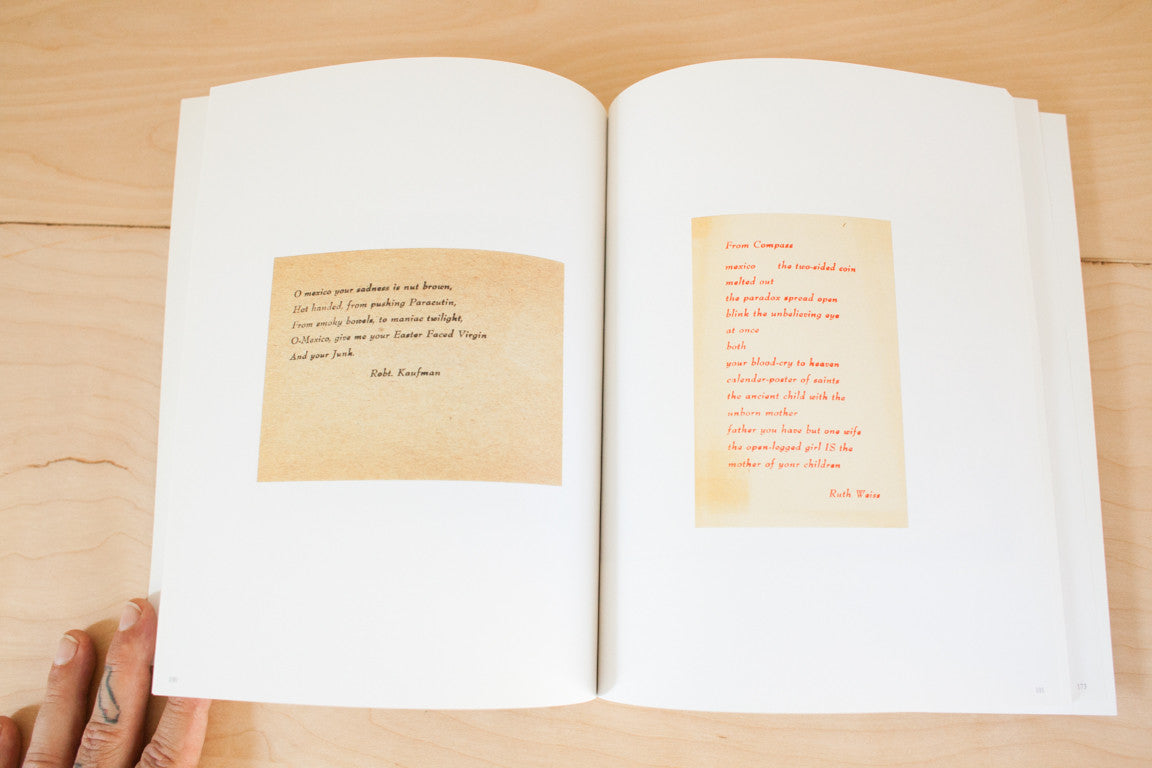 O mexico your sadness is nut brown,
Hot handed, from pushing Paracutin,
From smoky bowels, to maniac twilight,
O-Mexico, give me your Easter Faced Virgin
And your Junk.
Robt. Kaufman
From Compass
mexico the two-sided coin
melted out
the paradox spread open
blink the unbelieving eye
at once
both
your blood-cry to heaven
calender-poster of saints
the ancient child with the
unborn mother
father you have but one wife
the open-legged girl IS the
mother of your children
Ruth Weiss
173